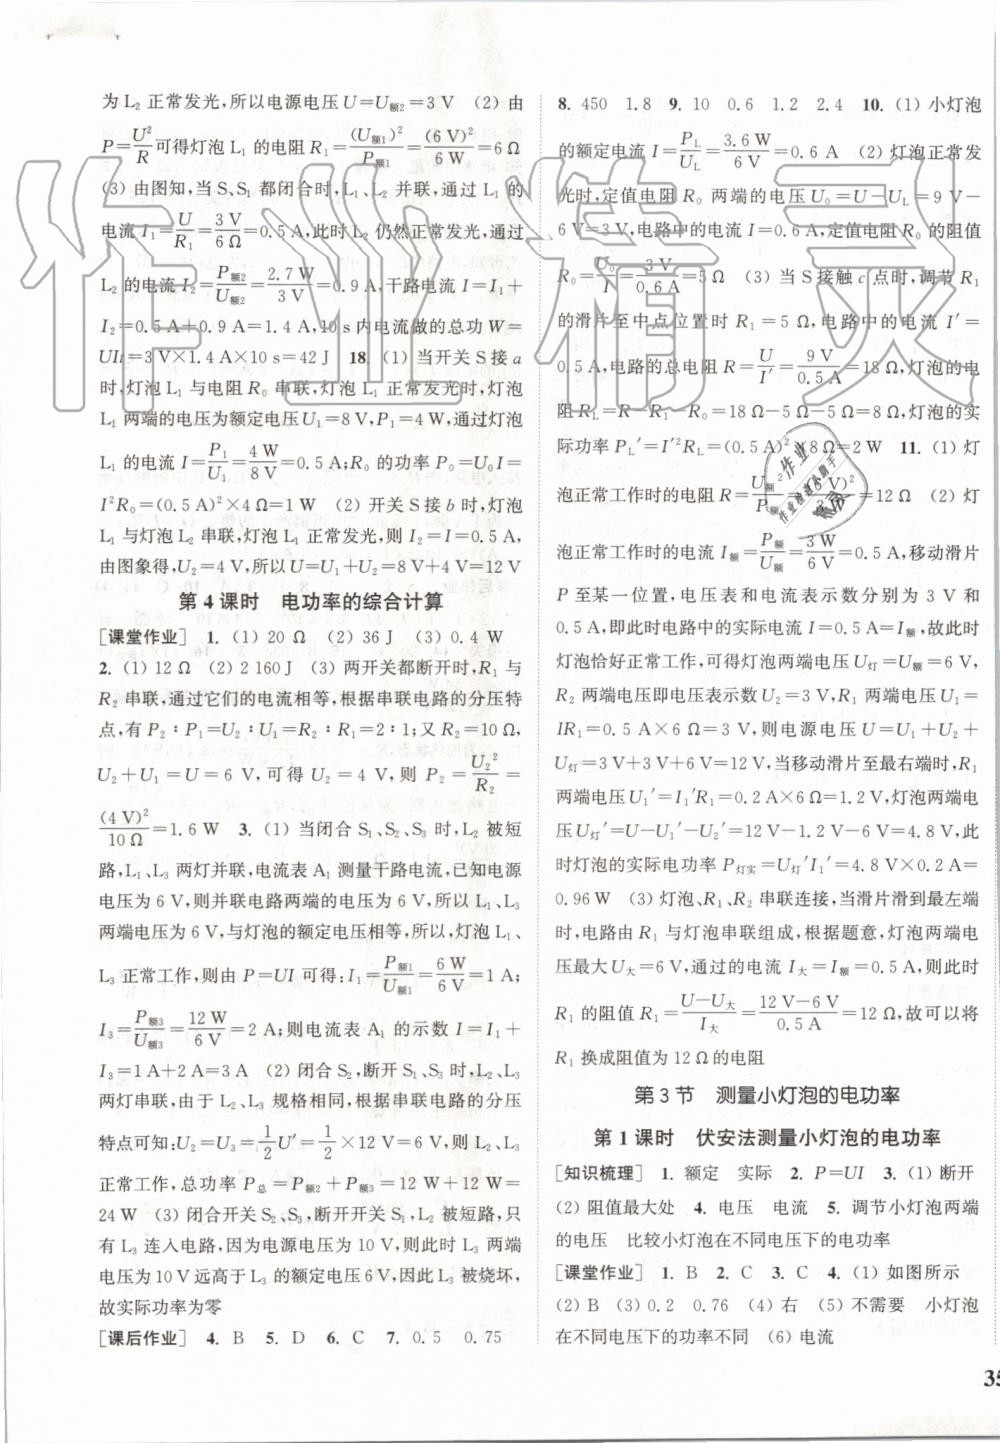 为 L₂ 正常发光,所以电源电压 U=U额2=3 V　(2) 由
P=U²/R 可得灯泡 L₁ 的电阻 R₁=(U额1)²/P额1=(6 V)²/6 W=6 Ω
(3) 由图知,当 S、S₁ 都闭合时,L₁、L₂ 并联,通过 L₁ 的
电流 I₁=U/R₁=3 V/6 Ω=0.5 A,此时 L₂ 仍然正常发光,通过
L₂ 的电流 I₂=P额2/U额2=2.7 W/3 V=0.9 A,干路电流 I=I₁+
I₂=0.5 A+0.9 A=1.4 A,10 s 内电流做的总功 W=
UIt=3 V×1.4 A×10 s=42 J　18. (1) 当开关 S 接 a
时,灯泡 L₁ 与电阻 R₀ 串联,灯泡 L₁ 正常发光时,灯泡
L₁ 两端的电压为额定电压 U₁=8 V,P₁=4 W,通过灯泡
L₁ 的电流 I=P₁/U₁=4 W/8 V=0.5 A;R₀ 的功率 P₀=U₀I=
I²R₀=(0.5 A)²×4 Ω=1 W　(2) 开关 S 接 b 时,灯泡
L₁ 与灯泡 L₂ 串联,灯泡 L₁ 正常发光,则 I₂=I=0.5 A,
由图象得,U₂=4 V,所以 U=U₁+U₂=8 V+4 V=12 V
第 4 课时　电功率的综合计算
[课堂作业]　1. (1) 20 Ω　(2) 36 J　(3) 0.4 W
2. (1) 12 Ω　(2) 2 160 J　(3) 两开关都断开时,R₁ 与
R₂ 串联,通过它们的电流相等,根据串联电路的分压特
点,有 P₂∶P₁=U₂∶U₁=R₂∶R₁=2∶1;又 R₂=10 Ω,
U₂+U₁=U=6 V,可得 U₂=4 V,则 P₂=U₂²/R₂=
(4 V)²/10 Ω=1.6 W　3. (1) 当闭合 S₁、S₂、S₃ 时,L₂ 被短
路,L₁、L₃ 两灯并联,电流表 A₁ 测量干路电流,已知电源
电压为 6 V,则并联电路两端的电压为 6 V,所以 L₁、L₃
两端电压为 6 V,与灯泡的额定电压相等,所以,灯泡 L₁、
L₃ 正常工作,则由 P=UI 可得:I₁=P额1/U额1=6 W/6 V=1 A;
I₃=P额3/U额3=12 W/6 V=2 A;则电流表 A₁ 的示数 I=I₁+
I₃=1 A+2 A=3 A　(2) 闭合 S₂,断开 S₁、S₃ 时,L₂、L₃
两灯串联,由于 L₂、L₃ 规格相同,根据串联电路的分压
特点可知:U₂=U₃=1/2U′=1/2×12 V=6 V,所以 L₂、L₃
正常工作,总功率 P总=P额2+P额3=12 W+12 W=
24 W　(3) 闭合开关 S₂、S₃,断开开关 S₁,L₂ 被短路,只
有 L₃ 连入电路,因为电源电压为 10 V,则此时 L₃ 两端
电压为 10 V 远高于 L₃ 的额定电压 6 V,L₃ 被烧坏,
故实际功率为零
[课后作业]　4. B　5. D　6. C　7. 0.5　0.75
8. 450　1.8　9. 10　0.6　1.2　2.4　10. (1) 小灯泡
的额定电流 I=PL/UL=3.6 W/6 V=0.6 A　(2) 灯泡正常发
光时,定值电阻 R₀ 两端的电压 U₀=U-UL=9 V-
6 V=3 V,电路中的电流 I=0.6 A,定值电阻 R₀ 的阻值
R₀=U₀/I=3 V/0.6 A=5 Ω　(3) 当 S 接触 c 点时,调节 R₁
的滑片至中点位置时 R₁=5 Ω,电路中的电流 I′=
0.5 A,电路的总电阻 R=U/I′=9 V/0.5 A=18 Ω,灯泡的电
阻 RL=R-R₁-R₀=18 Ω-5 Ω-5 Ω=8 Ω,灯泡的实
际功率 PL′=I′²RL=(0.5 A)²×8 Ω=2 W　11. (1) 灯
泡正常工作时的电阻 R=U额²/P额=(6 V)²/3 W=12 Ω　(2) 灯
泡正常工作时的电流 I额=P额/U额=3 W/6 V=0.5 A,移动滑片
P 至某一位置,电压表和电流表示数分别为 3 V 和
0.5 A,即此时电路中的实际电流 I=0.5 A=I额,故此时
灯泡恰好正常工作,可得灯泡两端电压 U灯=U额=6 V,
R₂ 两端电压即电压表示数 U₂=3 V,R₁ 两端电压 U₁=
IR₁=0.5 A×6 Ω=3 V,则电源电压 U=U₁+U₂+
U灯=3 V+3 V+6 V=12 V,当移动滑片至最右端时,R₁
两端电压 U₁′=I₁′R₁=0.2 A×6 Ω=1.2 V,灯泡两端电
压 U灯′=U-U₁′-U₂′=12 V-1.2 V-6 V=4.8 V,此
时灯泡的实际电功率 P灯实=U灯′I₁′=4.8 V×0.2 A=
0.96 W　(3) 灯泡、R₁、R₂ 串联连接,当滑片滑到最左端
时,电路由 R₁ 与灯泡串联组成,根据题意,灯泡两端电
压最大 U大=6 V,通过的电流 I大=I额=0.5 A,则此时
R₁ 的阻值 R₁=U-U大/I大=12 V-6 V/0.5 A=12 Ω,故可以将
R₁ 换成阻值为 12 Ω 的电阻
第 3 节　测量小灯泡的电功率
第 1 课时　伏安法测量小灯泡的电功率
[知识梳理]　1. 额定　实际　2. P=UI　3. (1) 断开
(2) 阻值最大处　4. 电压　电流　5. 调节小灯泡两端
的电压　比较小灯泡在不同电压下的电功率
[课堂作业]　1. B　2. C　3. C　4. (1) 如图所示
(2) B　(3) 0.2　0.76　(4) 右　(5) 不需要　小灯泡
在不同电压下的功率不同　(6) 电流
35
作业精灵